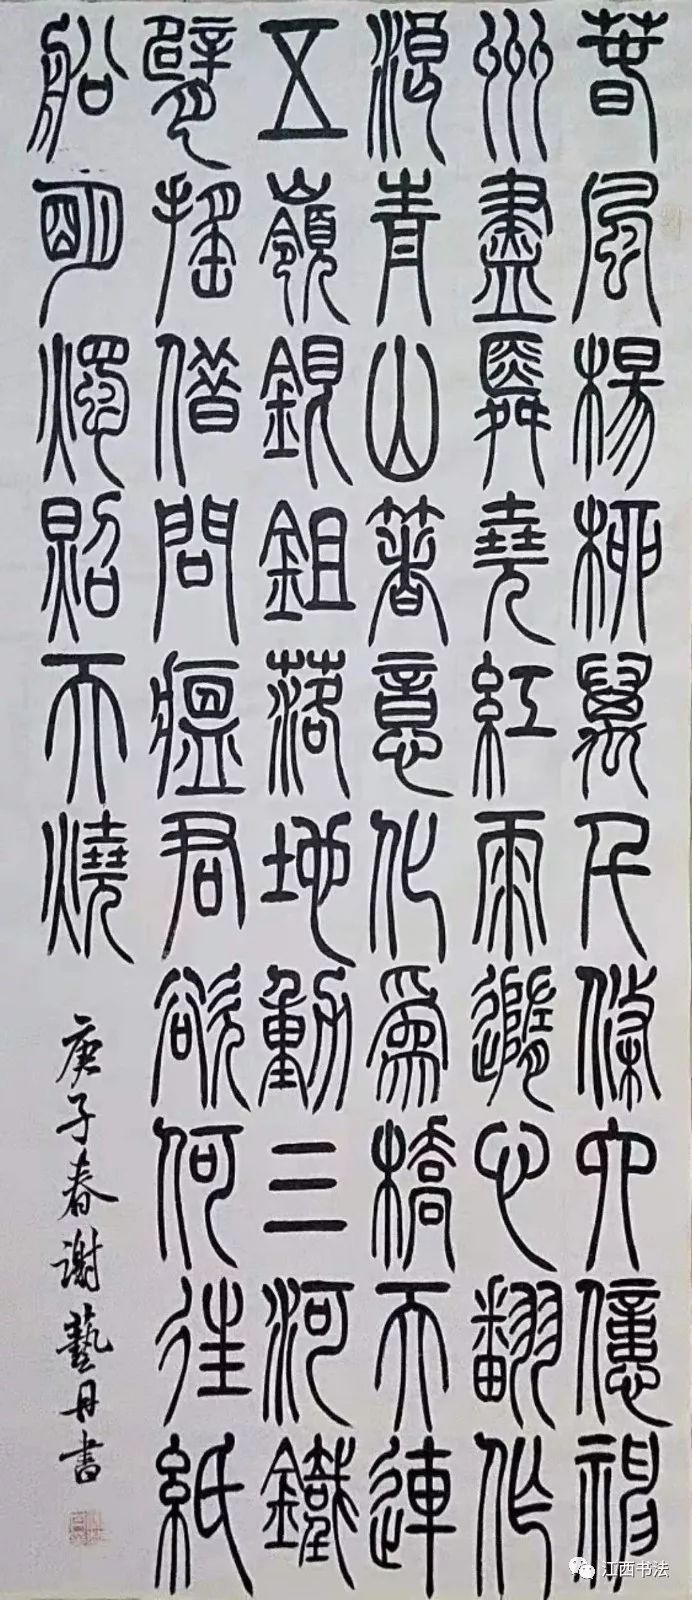 春風楊柳萬千條六億神
州盡舜堯紅雨隨心翻作
浪青山著意化爲橋天連
五嶺銀鉏落地動三河鐵
臂搖借問瘟君欲何往紙
船明燭照天燒
庚子春谢藝丹書
江西书法